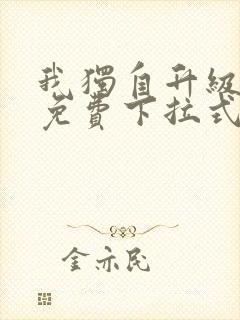 我獨自升級
免費下拉式
金亦民